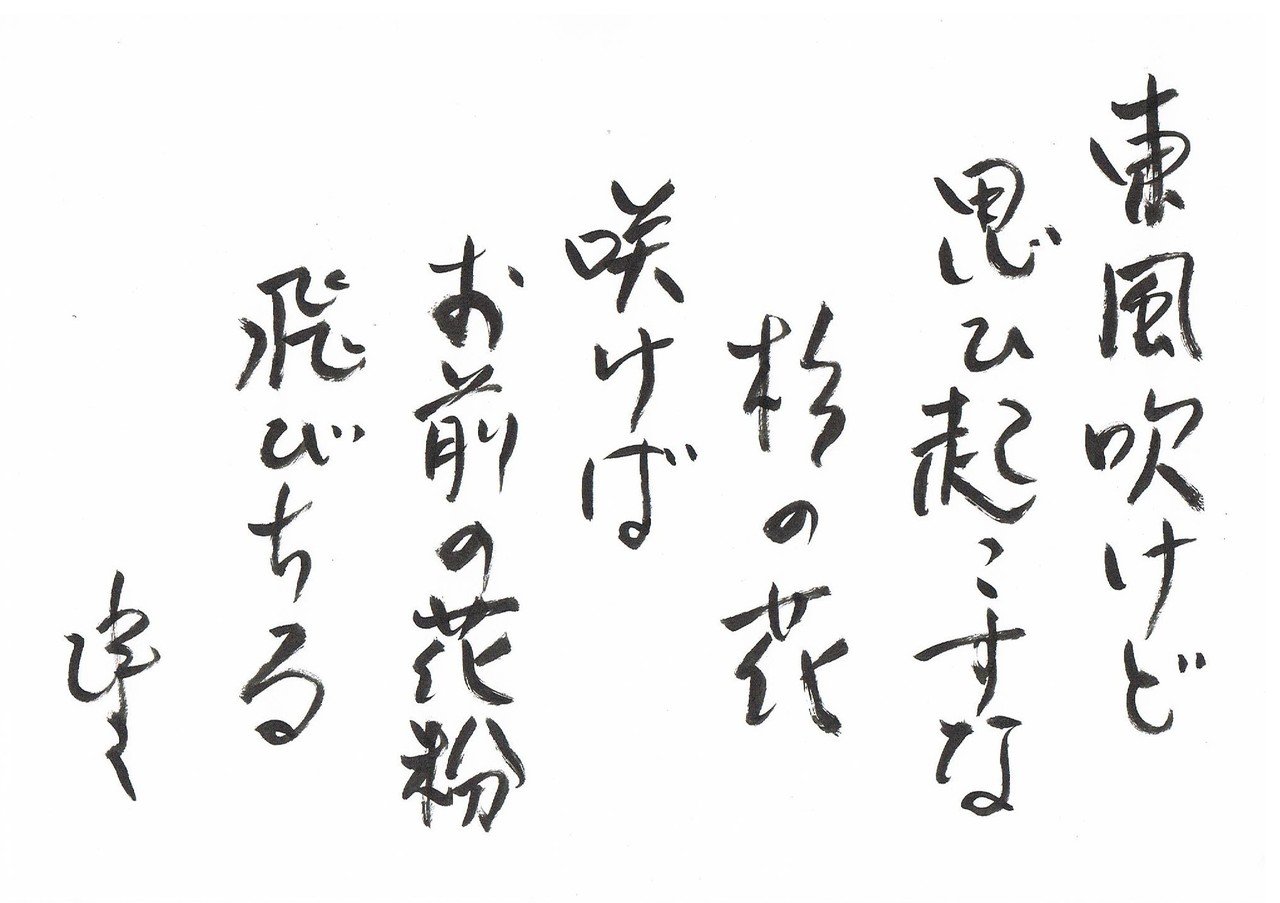 東風吹けど
思ひ起こすな
杉の花
咲けば
お前の花粉
飛びちる